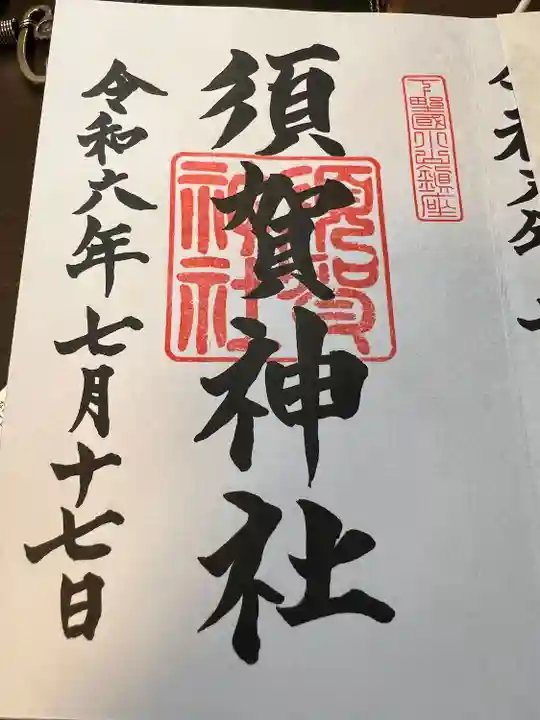 下野國小山鎮座
須賀神社
須賀神社
令和六年七月十七日